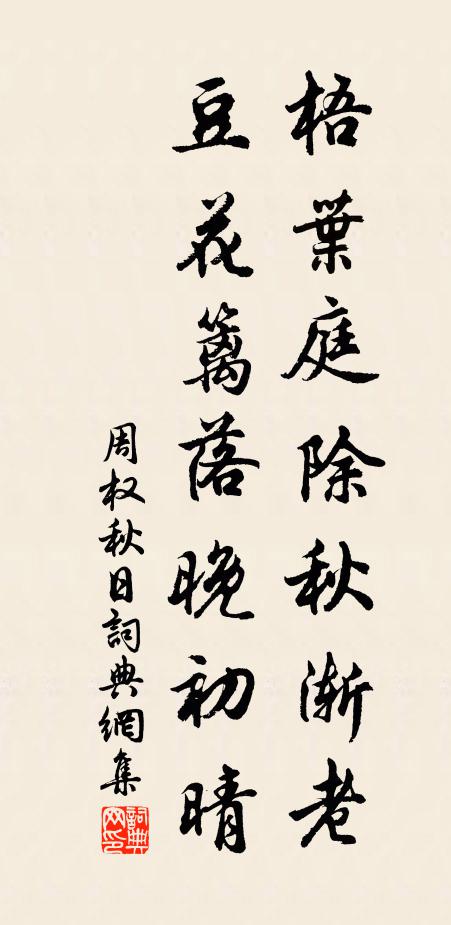 梧葉庭除秋漸老
豆花籬落晚初晴
周权秋日詞典網集
詞典網印